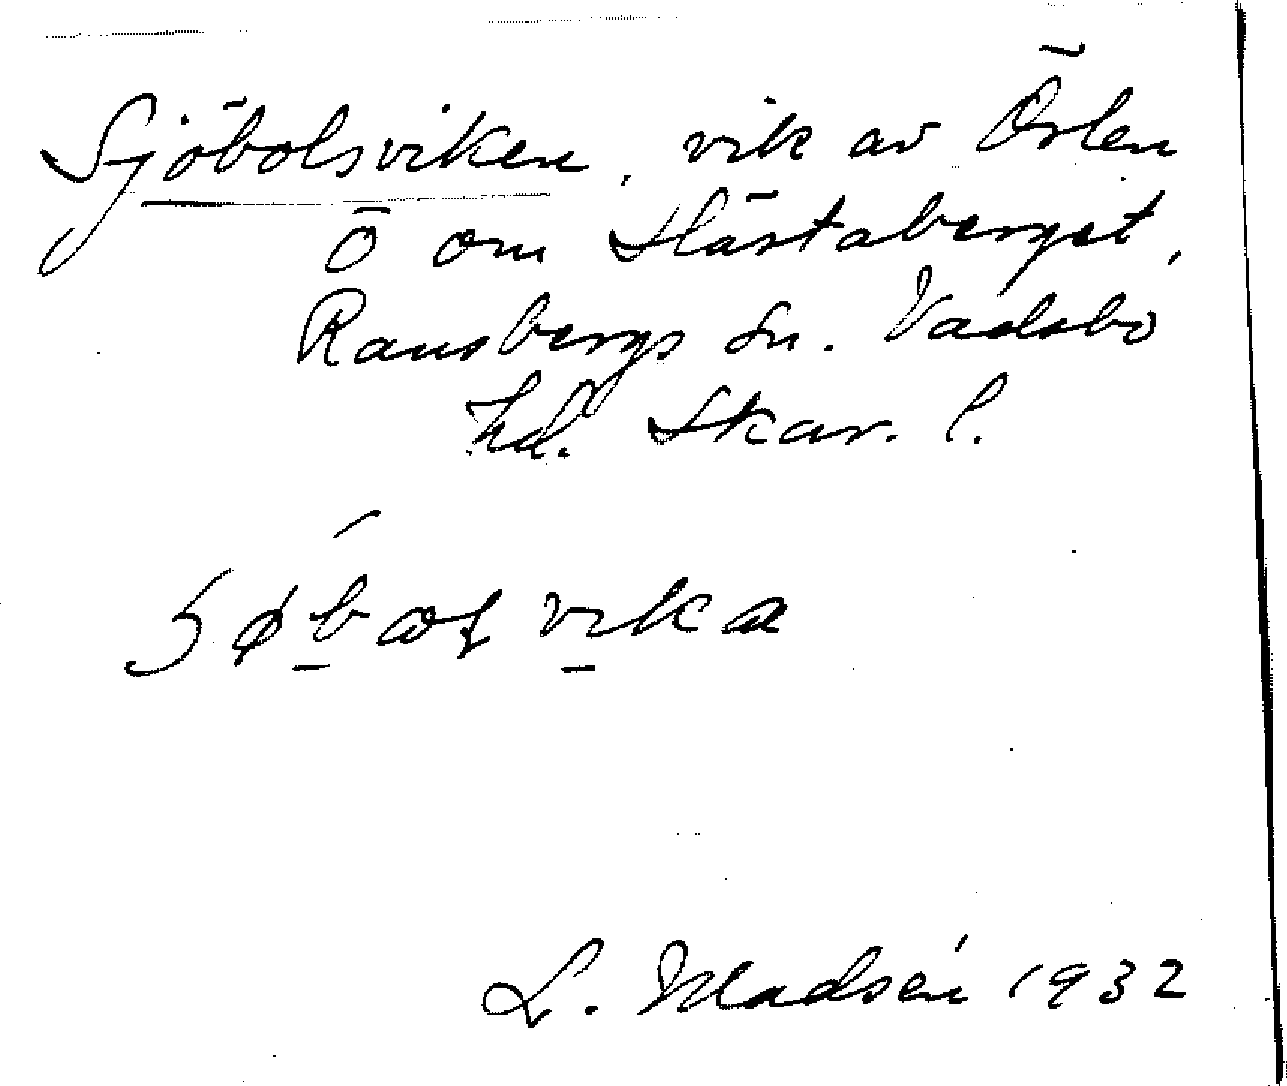 Sjöbolsviken, vik av Örlen
Ö om Slästaberget,
Ransbergs sn. Vadsbo
hd. Skar. l.
L. Madsén 1932